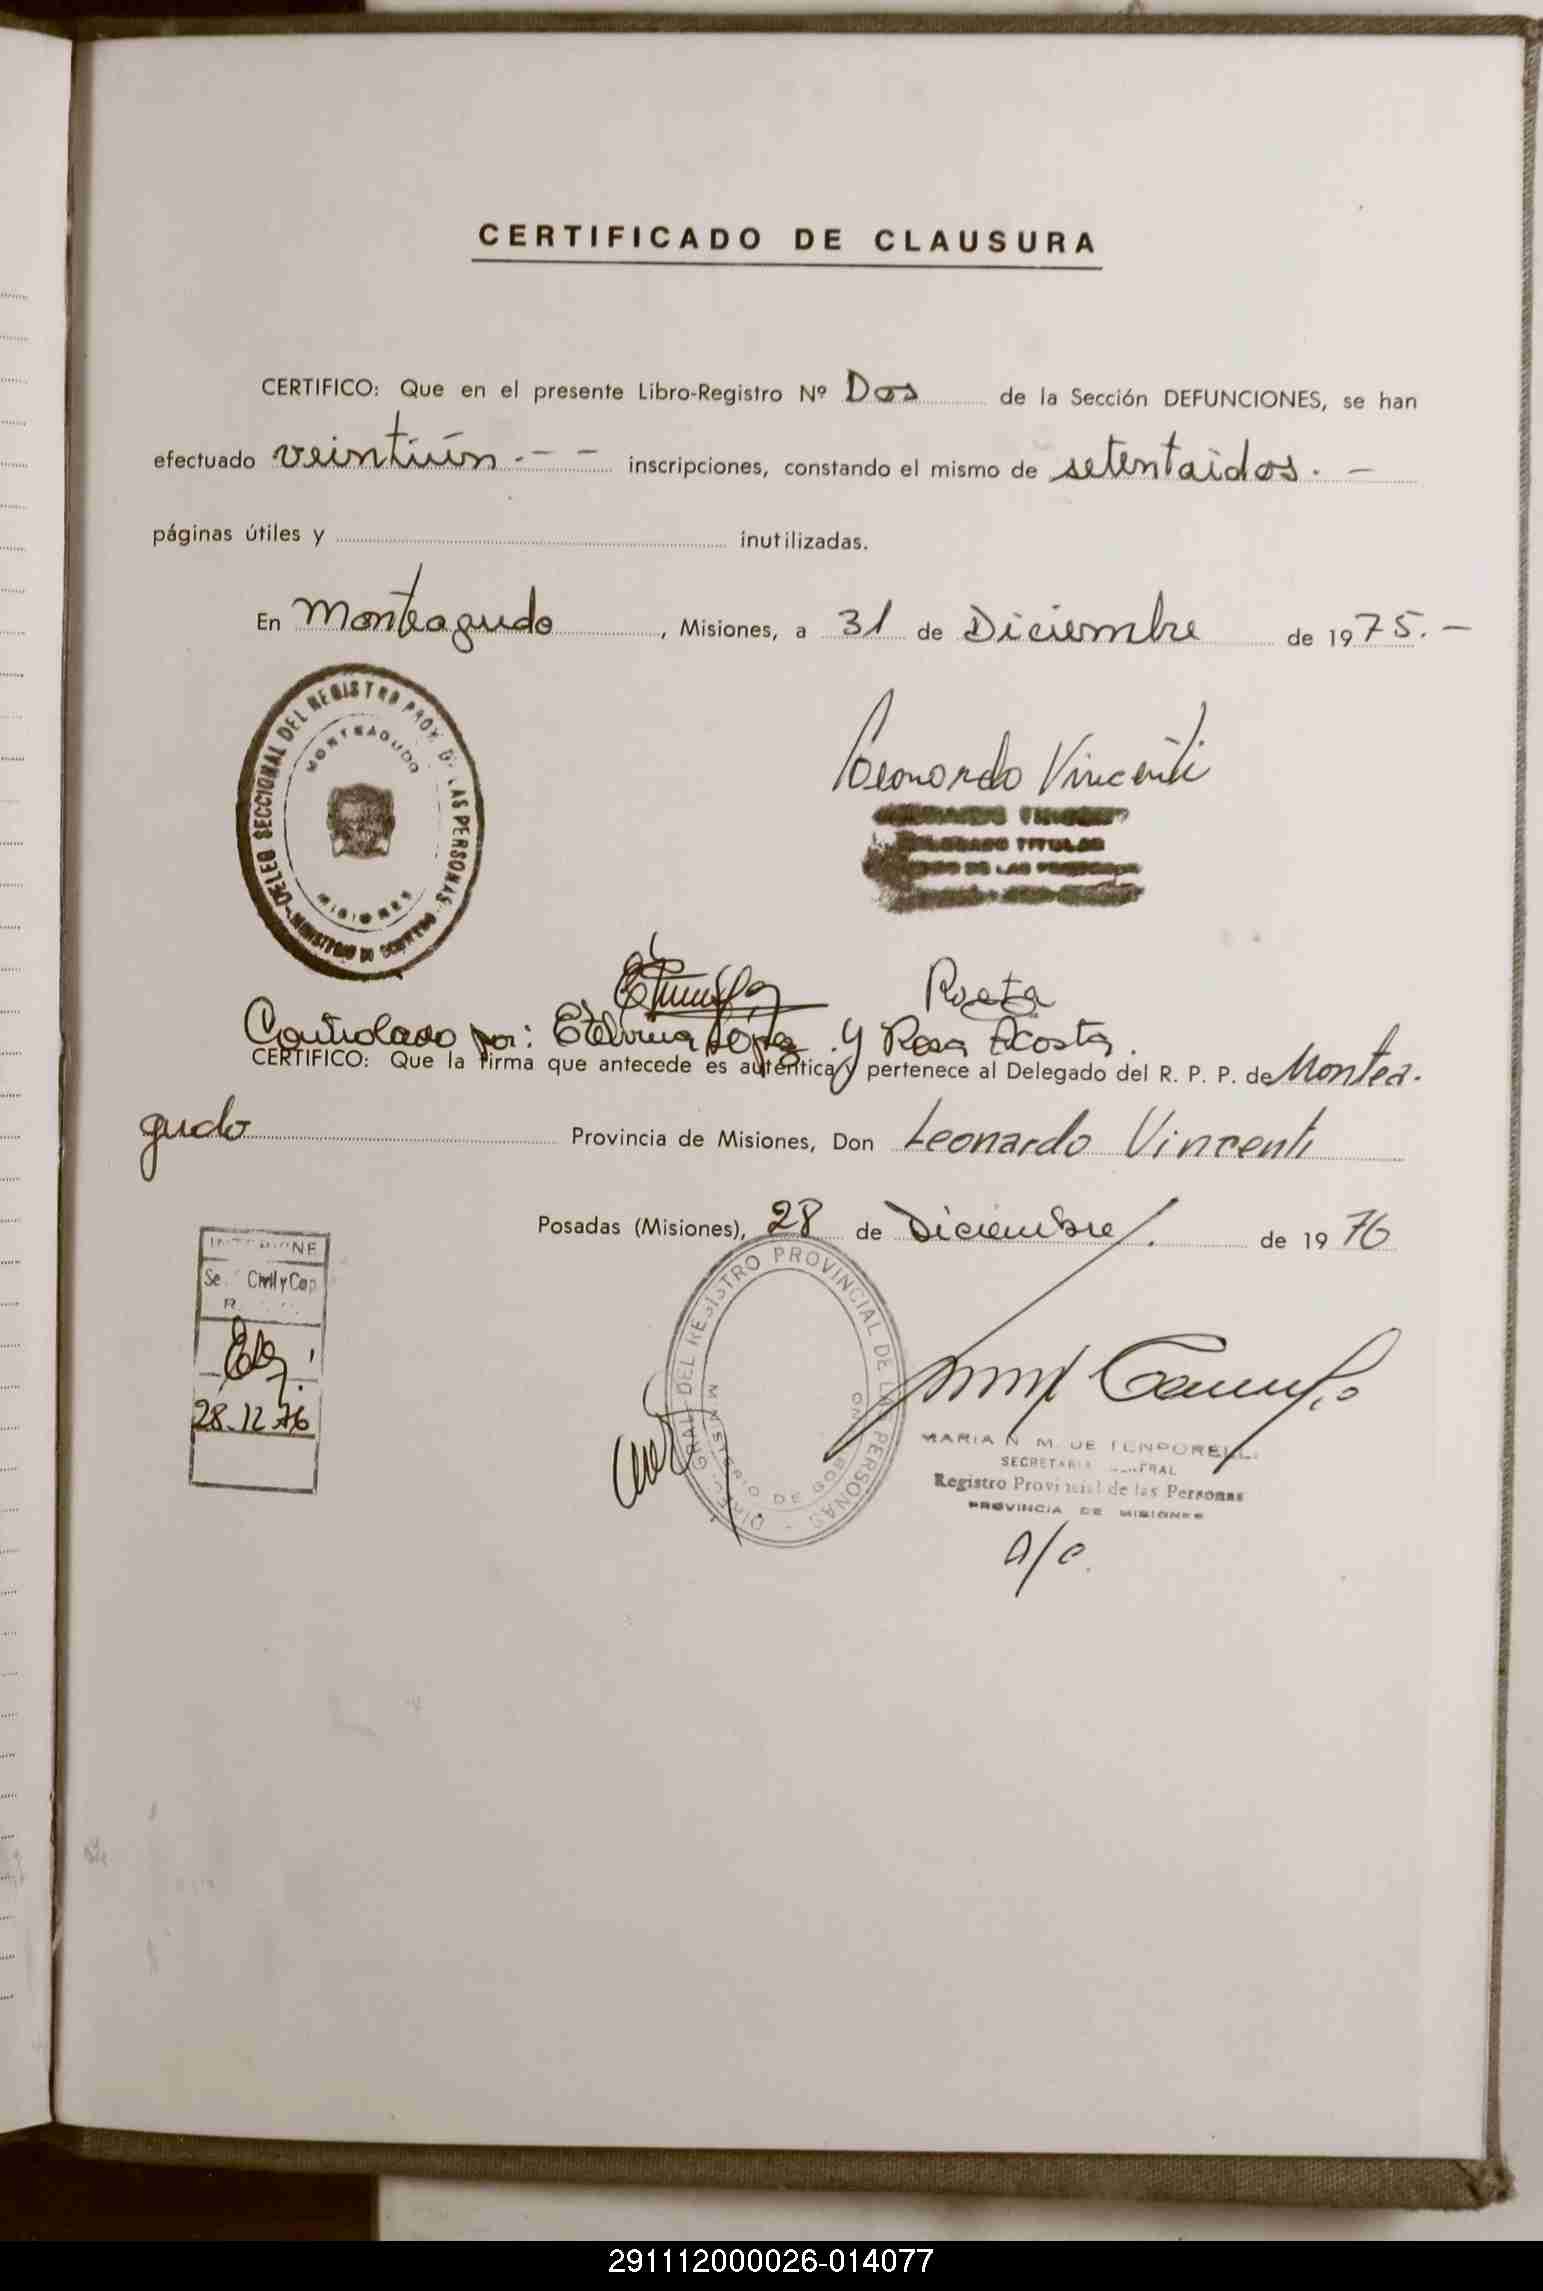 CERTIFICADO DE CLAUSURA
CERTIFICO: Que en el presente Libro-Registro Nº Dos de la Sección DEFUNCIONES, se han
efectuado veintiún.- - inscripciones, constando el mismo de setentaidos. -
páginas útiles y inutilizadas.
En Monteagudo, Misiones, a 31 de Diciembre de 1975.-
DELEG SECCIONAL DEL REGISTRO PROV. DE LAS PERSONAS
MONTEAGUDO
MISIONES
Leonardo Vincenti
TITULAR
Controlado por: Etelvina López y Rosa Acosta.
CERTIFICO: Que la firma que antecede es auténtica y pertenece al Delegado del R. P. P. de Montea-
gudo Provincia de Misiones, Don Leonardo Vincenti
Posadas (Misiones), 28 de Diciembre. de 1976
Civil y Cap
28.12.76
DIREC. GRAL. DEL REGISTRO PROVINCIAL DE LAS PERSONAS
MINISTERIO DE GOBIERNO
MARIA N. M. DE
SECRETARIA GENERAL
Registro Provincial de las Personas
PROVINCIA DE MISIONES
a/c.
291112000026-014077